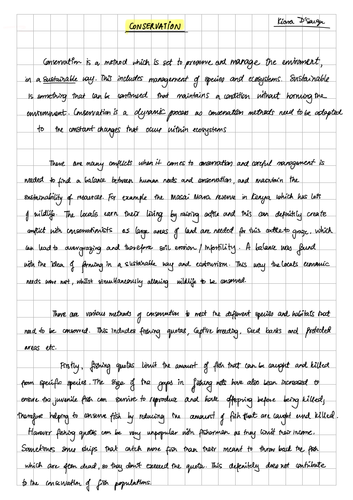 CONSERVATION
Kiana D'Souza
Conservation is a method which is set to preserve and manage the enviroment,
in a sustainable way. This includes management of species and ecosystems. Sustainable
is something that can be continued that maintains a condition without harming the
environment. Conservation is a dynamic process as conservation methods need to be adapted
to the constant changes that occur within ecosystems
There are many conflicts when it comes to conservation and careful management is
needed to find a balance between human needs and conservation, and maintain the
sustainability of resources. For example the Masai Mara reserve in Kenya which has lots
of wildlife. The locals earn their living by raising cattle and this can definitely create
conflict with conservationists as large areas of land are needed for this cattle to graze, which
can lead to overgrazing and therefore soil erosion / infertility. A balance was found
with the idea of farming in a sustainable way and ecotourism. This way the locals economic
needs were met, whilst simultaneously allowing wildlife to be conserved.
There are various methods of conservation to meet the different species and habitats that
need to be conserved. This includes fishing quotas, Captive breeding, Seed banks and protected
areas etc.
Firstly, fishing quotas limit the amount of fish that can be caught and killed
from specific species. The size of the gaps in fishing nets have also been increased to
ensure the juvenile fish can survive to reproduce and have offspring before being killed,
therefore helping to conserve fish by reducing the amount of fish that are caught and killed.
However fishing quotas can be very unpopular with fisherman as they limit their income.
Sometimes some ships that catch more fish than their meant to throw back the fish
which are often dead, so they dont exceed the quota. This definitely does not contribute
to the conservation of fish populations.